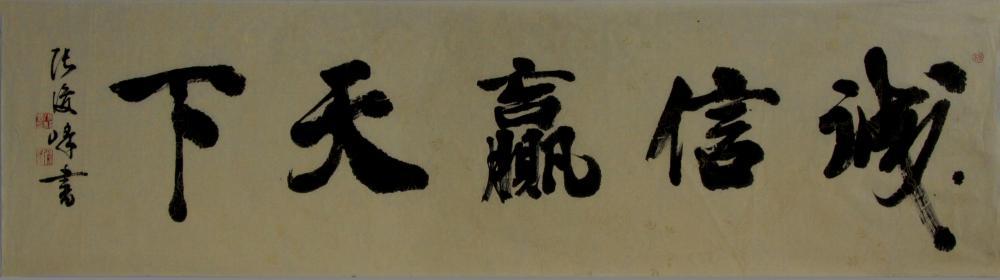 诚信赢天下
张俊峰书